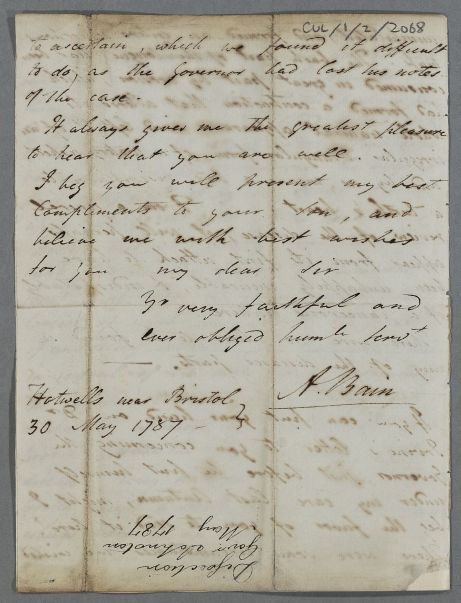 CUL/1/2/2068
to ascertain, which we found it difficult
to do, as the Governor had lost his notes
of the case.
It always gives me the greatest pleasure
to hear that you are well.
I beg you will present my best
Compliments to your Son, and
believe me with best wishes
for you my dear Sir
Yr very faithful and
ever obliged humle servt
A. Bain
Hotwells near Bristol
30 May 1787
Dissection
Govr Johnston
May 1787